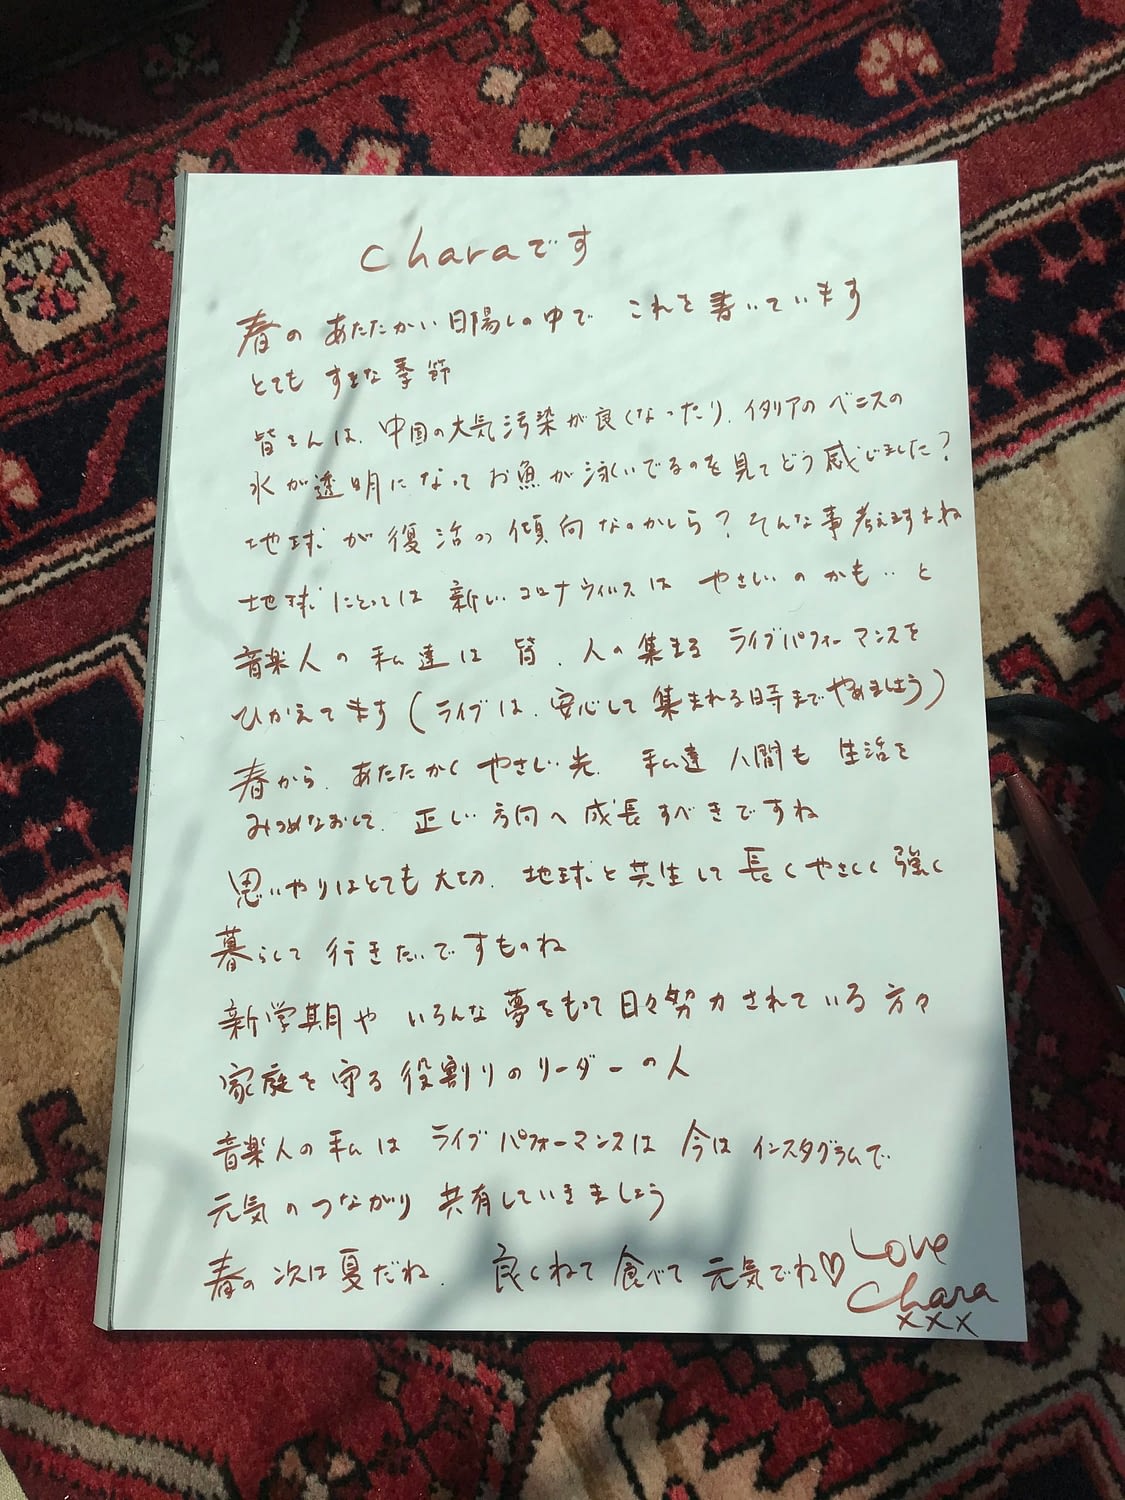 charaです
春の あたたかい日陽しの中で これを書いています
とても すきな季節
皆さんは、中国の大気汚染が良くなったり、イタリアのベニスの
水が透明になってお魚が泳いでるのを見てどう感じました?
地球が復活の傾向なのかしら?そんな事考えますよね
地球にとっては 新しいコロナウィルスは やさしいのかも‥と
音楽人の私達は皆、人の集まる ライブパフォーマンスを
ひかえてます(ライブは、安心して集まれる時までやめましょう)
春から、あたたかく やさしい光、私達人間も 生活を
みつめなおして、正しい方向へ成長すべきですね
思いやりはとても大切、地球と共生して長くやさしく強く
暮らして行きたいですものね
新学期や いろんな夢をもって日々努力されている方々
家庭を守る役割りのリーダーの人
音楽人の私は ライブパフォーマンスは 今は インスタグラムで
元気のつながり 共有していきましょう
春の次は夏だね、 良くねて食べて 元気でね♡ Love
Chara
xxx